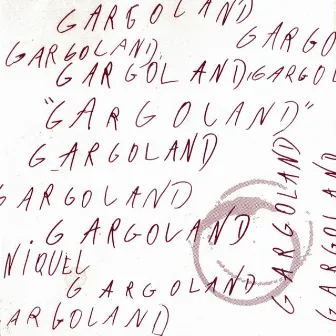 GARGOLAND
GARGOLAND
GARGO
GARGOLAND
GARGO
"GARGOLAND"
GARGOLAND
GARGOLAND
GARGOLAND
NIQUEL
GARGOLAND
GARGOLAND
GARGOLAND
GARGOLAND